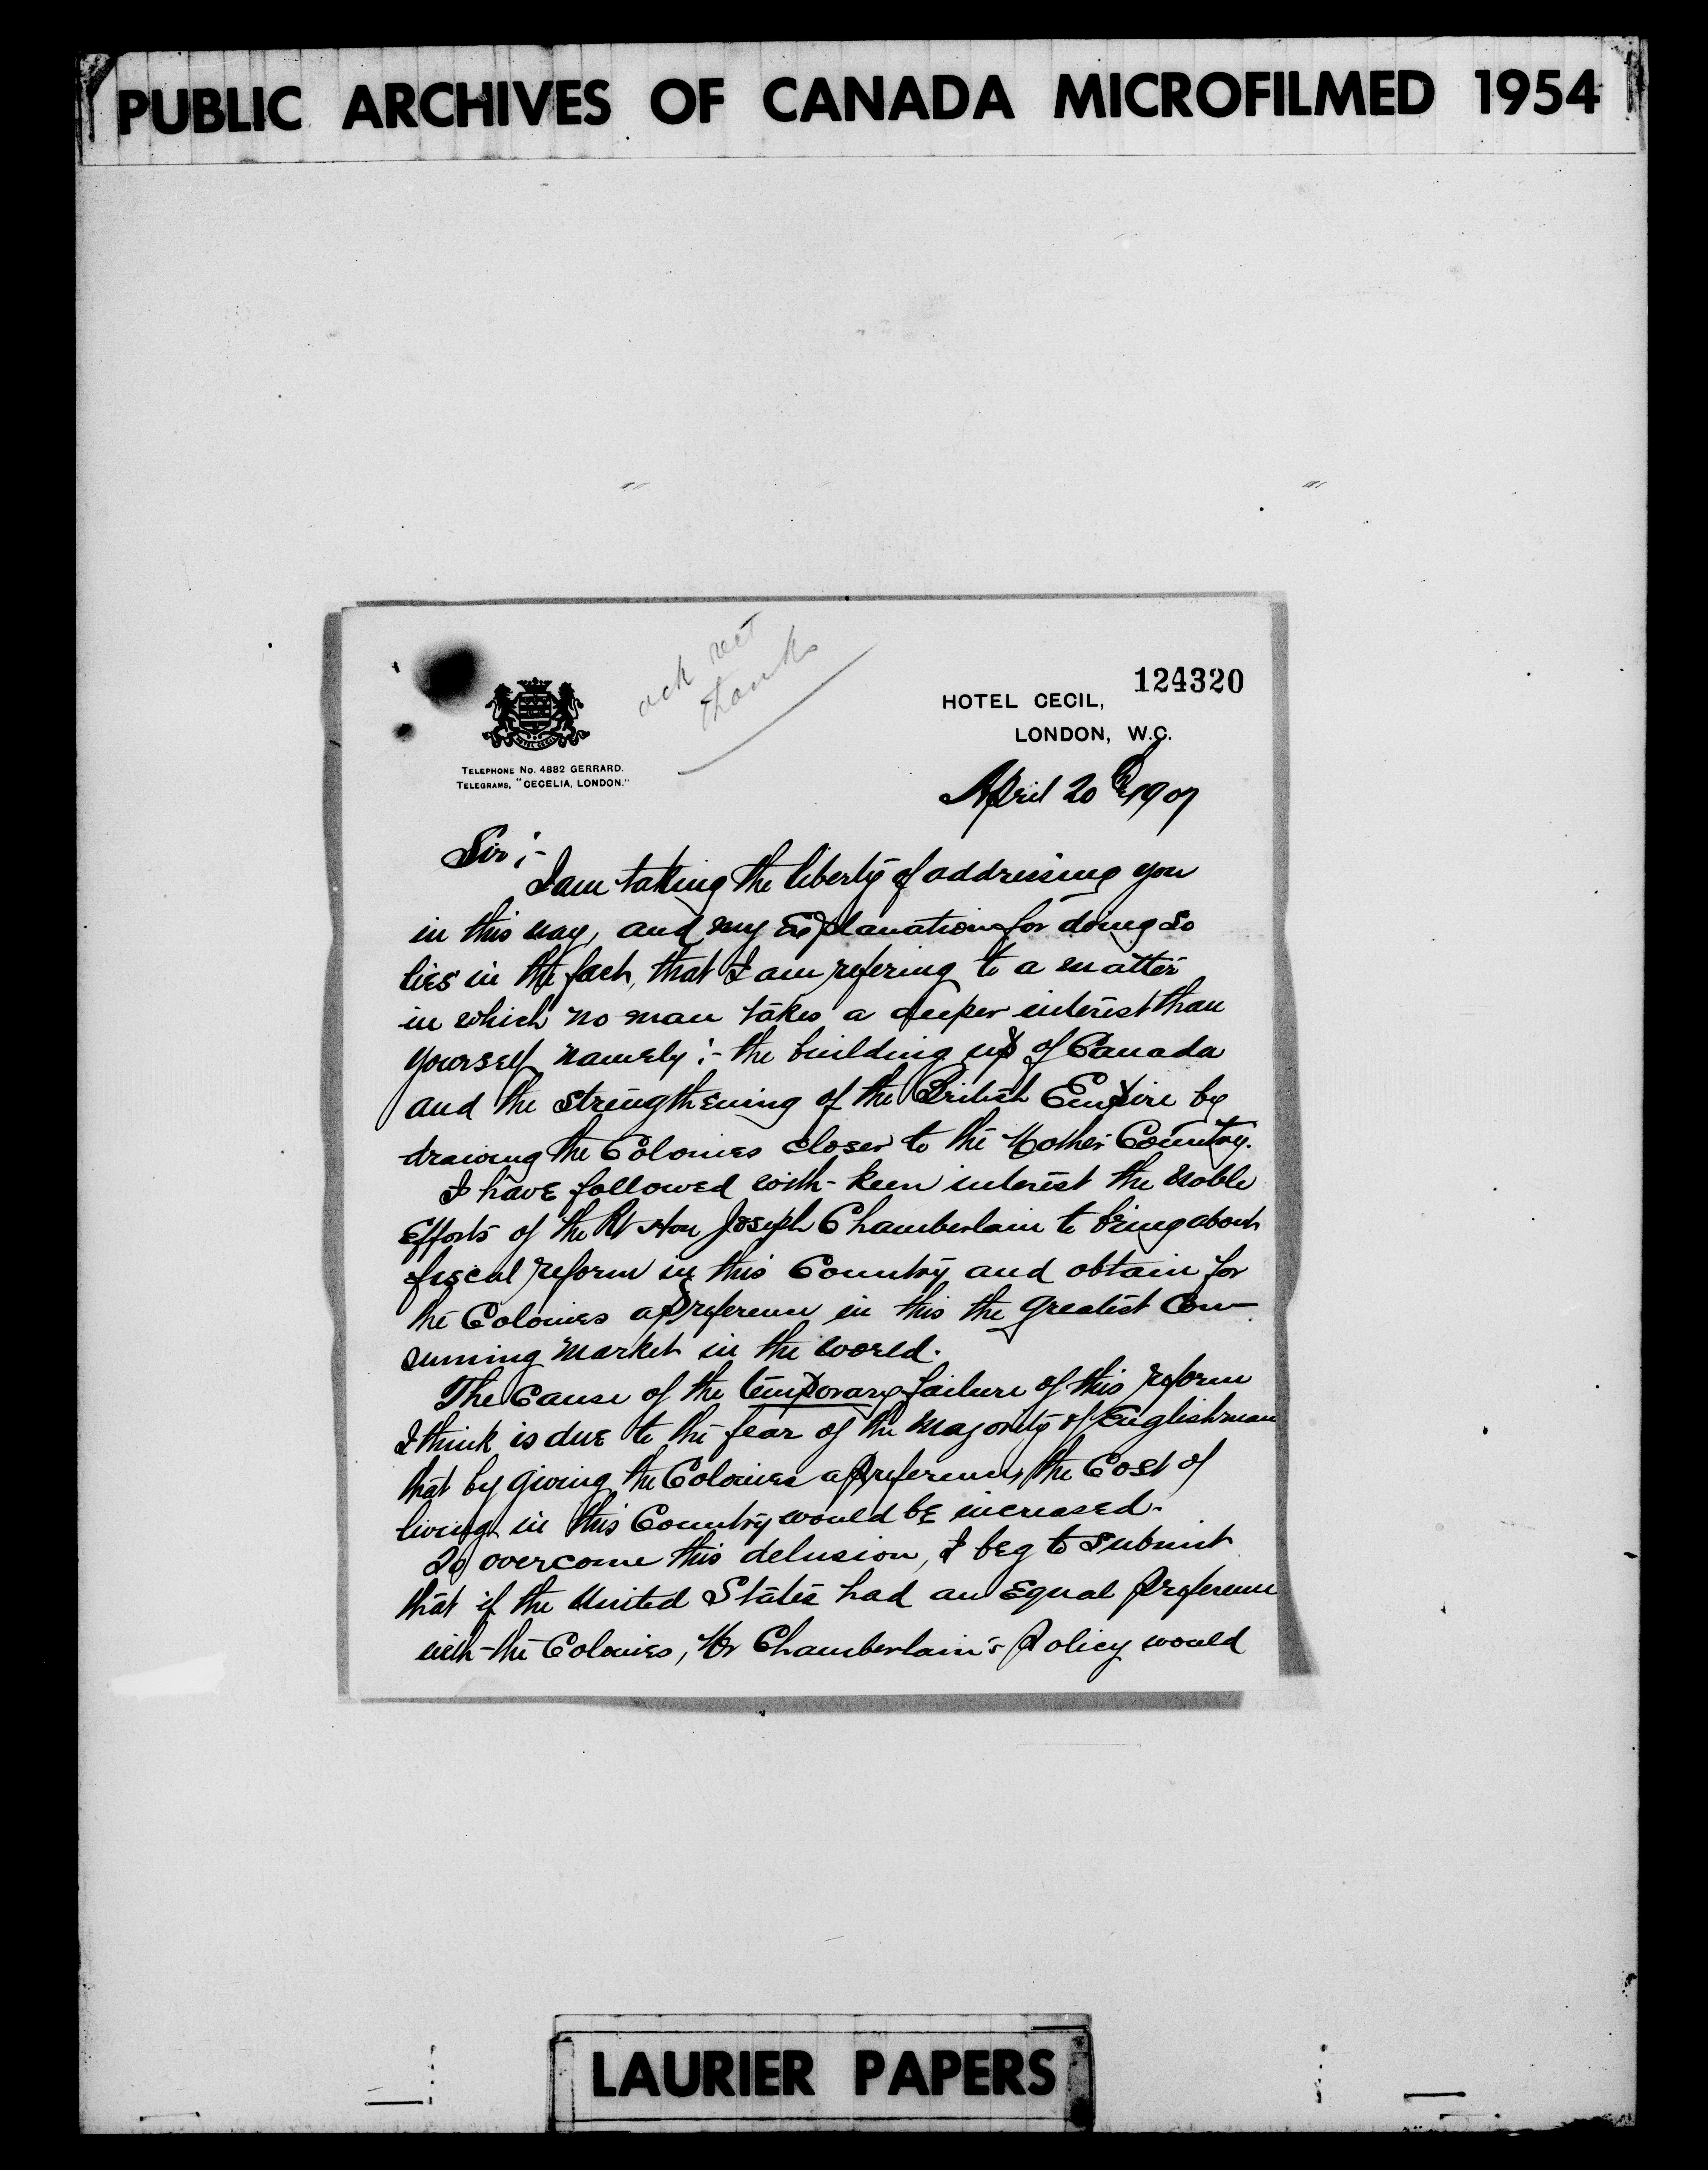 PUBLIC ARCHIVES OF CANADA MICROFILMED 1954
ack rec't
thanks
124320
HOTEL CECIL,
LONDON, W.C.
HOTEL CECIL
TELEPHONE No. 4882 GERRARD.
TELEGRAMS, "CECELIA, LONDON."
April 20th 1907
Sir :-
I am taking the liberty of addressing you
in this way, and my Explanation for doing so
lies in the fact, that I am refering to a matter
in which no man takes a deeper interest than
yourself namely :- the building up of Canada
and the strengthening of the British Empire by
drawing the Colonies closer to the Mother Country.
I have followed with - keen interest the noble
Efforts of the Rt Hon Joseph Chamberlain to bring about
fiscal reform in this Country and obtain for
the Colonies a preference in this the greatest Con-
suming market in the world.
The Cause of the temporary failure of this reform
I think is due to the fear of the majority of Englishman
that by giving the Colonies a preference, the Cost of
living in this Country would be increased.
To overcome this delusion, I beg to submit
that if the United States had an Equal preference
with - the Colonies, Mr Chamberlain's Policy would
LAURIER PAPERS